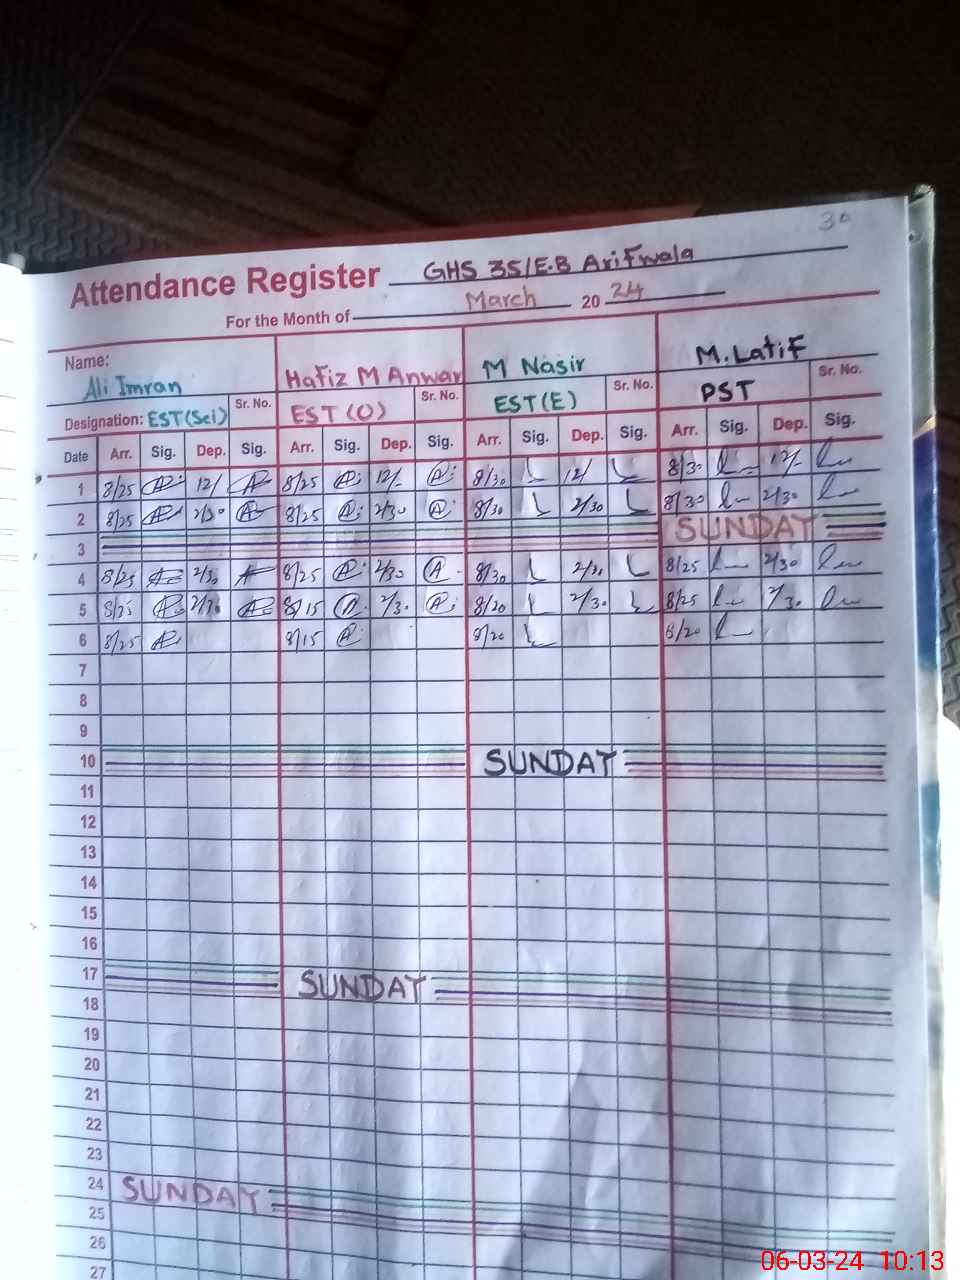 30
Attendance Register GHS 35/E.B Arifwala
For the Month of March 20 24
Name: Ali Imran Hafiz M Anwar M Nasir M. Latif
Designation: EST(Sci) Sr. No. EST (O) Sr. No. EST(E) Sr. No. PST Sr. No.
Date Arr. Sig. Dep. Sig. Arr. Sig. Dep. Sig. Arr. Sig. Dep. Sig. Arr. Sig. Dep. Sig.
1 8/25 12/ 8/25 12/- 8/30 12/ 8/30 12/-
2 8/25 2/30 8/25 2/30 8/30 2/30 8/30 2/30
3 SUNDAY
4 8/25 2/30 8/25 2/30 8/30 2/30 8/25 2/30
5 8/25 2/30 8/15 2/30 8/20 2/30 8/25 2/30
6 8/25 8/15 8/20 8/20
7
8
9
10 SUNDAY
11
12
13
14
15
16
17 SUNDAY
18
19
20
21
22
23
24 SUNDAY
25
26
27
06-03-24 10:13